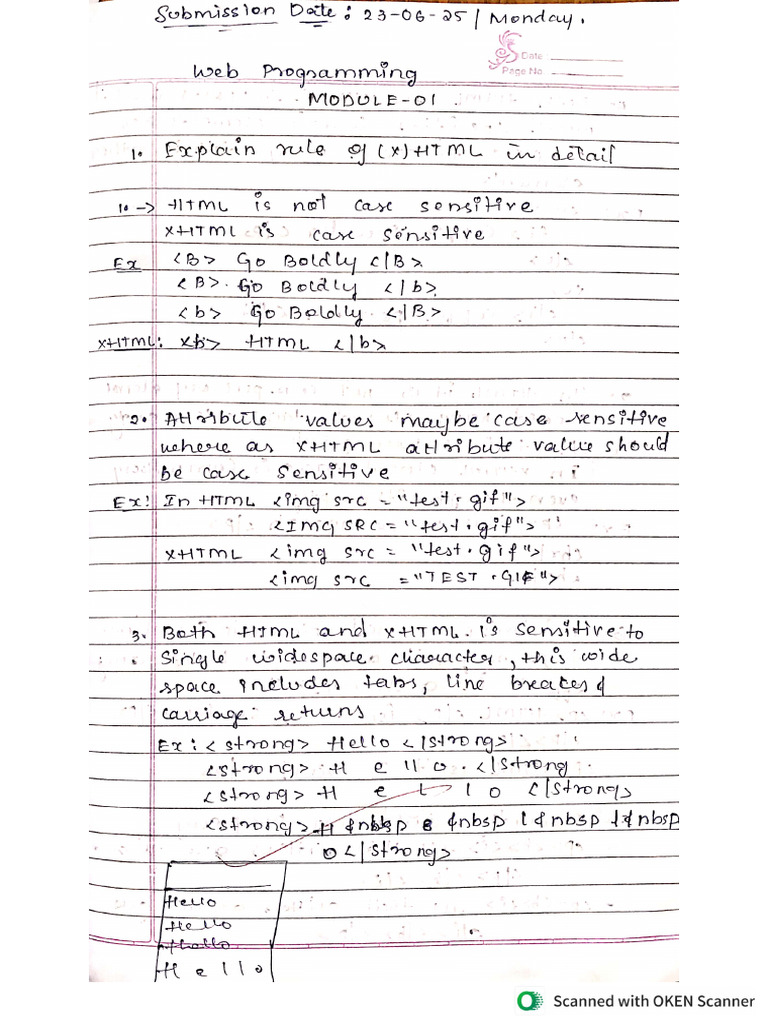 Submission Date: 23-06-25 / Monday.
Date:
Page No.
Web Programming
MODULE-01
1. Explain rule of (X)HTML in detail
1. -> HTML is not case sensitive
XHTML is case sensitive
Ex <B> Go Boldly </B>
<B> Go Boldly </b>
<b> Go Boldly </B>
XHTML: <b> HTML </b>
2. Attribute values maybe case sensitive
where as XHTML attribute value should
be case sensitive
Ex: In HTML <img src = "test.gif">
<IMG SRC = "test.gif">
XHTML <img src = "test.gif">
<img src = "TEST.GIF">
3. Both HTML and XHTML is sensitive to
Single widespace character, this wide
space includes tabs, line breakes &
carriage returns
Ex: <strong> Hello </strong>
<strong> H e ll o . </strong
<strong> H e l l o </strong>
<strong> H &nbsp e &nbsp l &nbsp l &nbsp
o </strong>
Hello
Hello
Hello
H e l l o
Scanned with OKEN Scanner